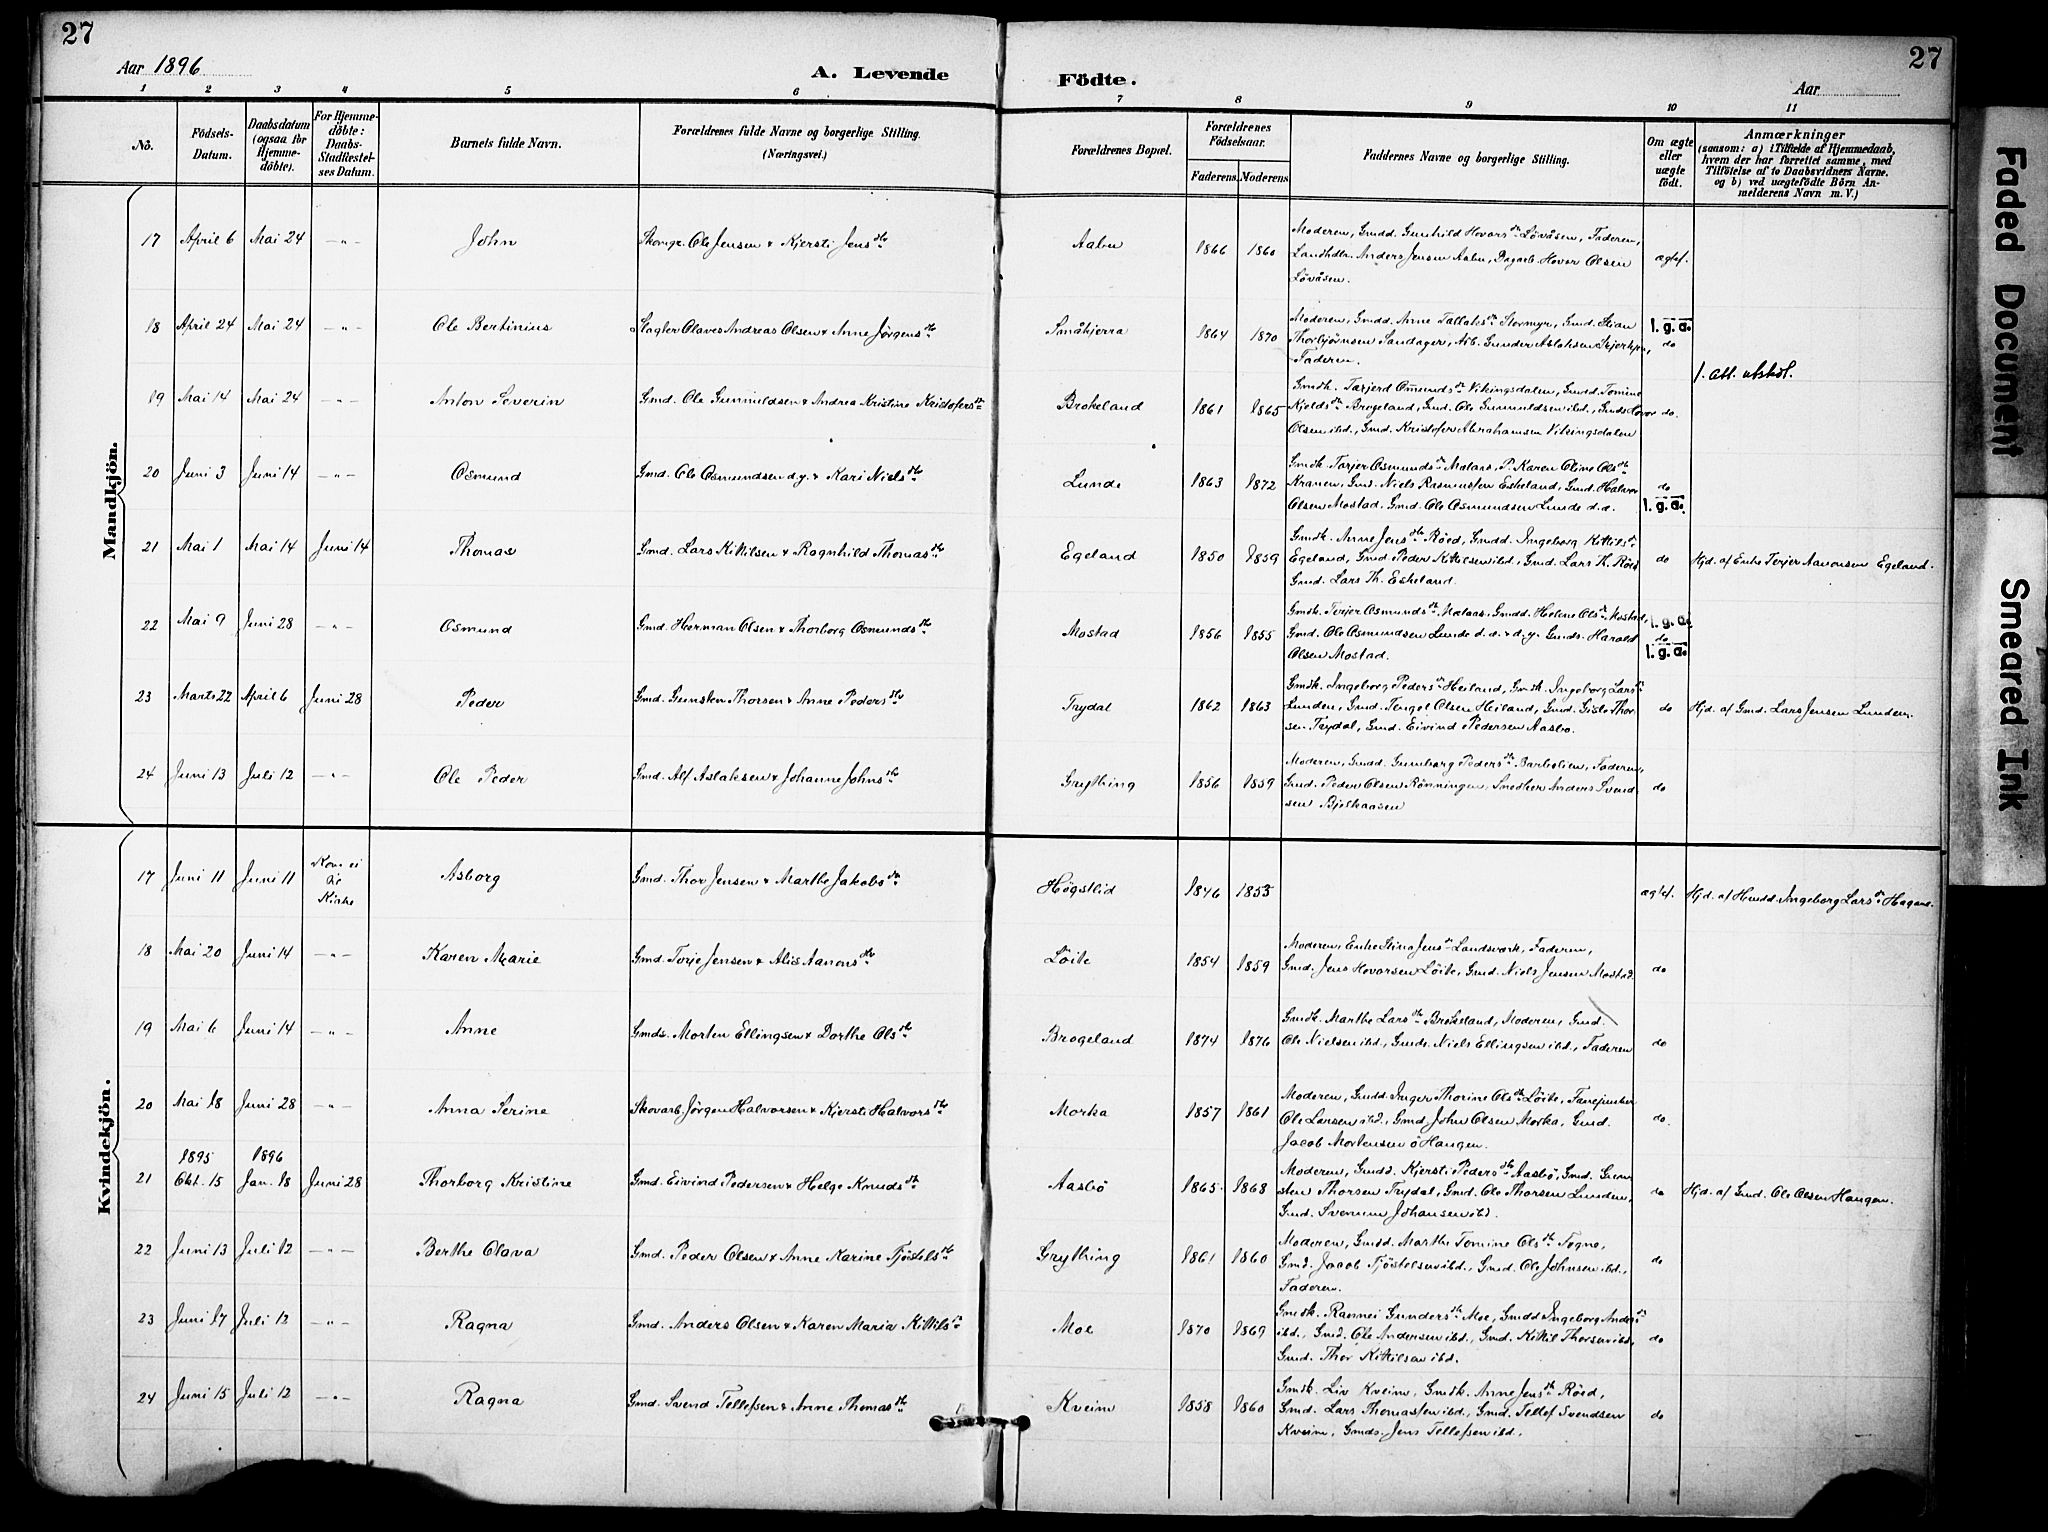 27
27
Aar 1896
A. Levende
Födte.
Aar
1 2 3 4 5 6 7 8 9 10 11
No.
Födsels-Datum.
Daabsdatum (ogsaa for Hjemme-döbte).
For Hjemme-döbte: Daabs-Stadfæstel-ses Datum.
Barnets fulde Navn.
Forældrenes fulde Navne og borgerlige Stilling. (Næringsvei.)
Forældrenes Bopæl.
Forældrenes Födselsaar.
Faderens. Moderens.
Faddernes Navne og borgerlige Stilling.
Om ægte eller uægte födt.
Anmærkninger
(saasom: a) i Tilfælde af Hjemmedaab, hvem der har forrettet samme, med Tilföielse af to Daabsvidners Navne. og b) ved uægtefödte Börn An-melderens Navn m. V.)
Mandkjön.
17 April 6 Mai 24 -"- John Skomgr. Ole Jensen & Kjersti Jensdtr Aabu 1866 1860 Moderen, Gmdd. Gunhild Hovorsdtr Lövåsen, Faderen,
Landhdlr. Anders Jensen Aabu, Dagarb. Hovor Olsen
Lövåsen. ægtef.
18 April 24 Mai 24 -"- Ole Bertinius Slagter Olaves Andreas Olsen & Anne Jörgensdtr Småkjerra 1864 1870 Moderen, Gmdd. Anne Tallaksdtr Stormyr, Gmd. Stian
Thorbjörnsen Sandager, Arb. Gunder Aslaksen
Faderen. l. g. a. do
1. att. utskst.
19 Mai 14 Mai 24 -"- Anton Severin Gmd. Ole Gunnuldsen & Andrea Kristine Kristofersdtr Brokeland 1861 1865 Gmdk. Tarjerd Osmundsdtr Vikingsdalen, Gmdd. Tomine
Kjeldsdtr Brogeland, Gmd. Ole Gunnuldsen ibd., Gmds. Hovor
Olsen ibd., Gmd. Kristofer Abrahamsen Vikingsdalen do.
20 Juni 3 Juni 14 -"- Osmund Gmd. Ole Osmundsen d.y. & Kari Nielsdtr Lunde 1863 1872 Gmdk. Tarjer Osmundsdtr Malaas, P. Karen Oline Olsdtr
Kranen, Gmd. Niels Rasmussen Eskeland, Gmd. Halvor
Olsen Mostad. Gmd. Ole Osmundsen Lunde d.æ. do l. g. a.
21 Mai 1 Mai 14 Juni 14 Thomas Gmd. Lars Kittilsen & Ragnhild Thomasdtr Egeland 1850 1859 Gmdk. Anne Jensdtr Röed, Gmdd. Ingeborg Kittilsdtr
Egeland, Gmd. Peder Kittelsen ibd., Gmd. Lars Th. Röed
Gmd. Lars Th. Eskeland. do Hjd. af Enke Terjer Aanonsen Egeland.
22 Mai 9 Juni 28 -"- Osmund Gmd. Herman Olsen & Thorborg Osmundsdtr Mostad 1856 1855 Gmdk. Terjer Osmundsdtr Malaas, Gmdd. Helene Olsdtr Mostad,
Gmd. Ole Osmundsen Lunde d.æ. & d.y. Gmds. Harald
Olsen Mostad. l. g. a. do l. g. a.
23 Marts 22 April 6 Juni 28 Peder Gmd. Gunsten Thorsen & Anne Pedersdtr Trydal 1862 1863 Gmdk. Ingeborg Pedersdtr Heiland, Gmdk. Ingeborg Larsdtr
Lunden, Gmd. Tengel Olsen Heiland, Gmd. Gisle Thor-
sen Trydal, Gmd. Eivind Pedersen Aasbö. do Hjd. af Gmd. Lars Jensen Lunden.
24 Juni 13 Juli 12 -"- Ole Peder Gmd. Alf Aslaksen & Johanne Johnsdtr Grytking 1856 1859 Moderen, Gmdd. Gunborg Pedersdtr Barbolien, Faderen,
Gmd. Peder Olsen Rönningen, Snedker Anders Svend-
sen Bjelkaasen do
Kvindekjön.
17 Juni 11 Juni 11 Kom ei til Kirke Asborg Gmd. Thor Jensen & Marthe Jakobsdtr Högstlid 1846 1853 ægtef. Hjd. af Hmdd. Ingeborg Larsdtr Hagane.
18 Mai 20 Juni 14 -"- Karen Marie Gmd. Torje Jensen & Alis Aanonsdtr Löite 1854 1859 Moderen, Enke Stina Jensdtr Landsværk, Faderen,
Gmd. Jens Hovorsen Löite, Gmd. Niels Jensen Mostad. do
19 Mai 6 Juni 14 -"- Anne Gmds. Morten Ellingsen & Dorthe Olsdtr Brogeland 1874 1876 Gmdk. Marthe Larsdtr Brokeland, Moderen, Gmd.
Ole Nielsen ibd., Gmds. Niels Ellingsen ibd., Faderen do
20 Mai 18 Juni 28 -"- Anna Serine Skovarb. Jörgen Halvorsen & Kjersti Halvorsdtr Morka 1857 1861 Moderen, Gmdd. Inger Thorine Olsdtr Löite,
Ole Larsen ibd., Gmd. John Olsen Morka, Gmd.
Jacob Mortensen ö Haugen. do.
21 1895 Okt. 15 1896 Jan. 18 Juni 28 Thorborg Kristine Gmd. Eivind Pedersen & Helge Knudsdtr Aasbö 1865 1868 Moderen, Gmdd. Kjersti Pedersdtr Aasbö, Gmd. Gun-
sten Thorsen Trydal, Gmd. Ole Thorsen Lunden,
Gmd. Svenum Johansen ibd. do Hjd. af Gmd. Ole Olsen Haugen.
22 Juni 13 Juli 12 -"- Berthe Olava Gmd. Peder Olsen & Anne Karine Tjöstelsdtr Grytking 1861 1860 Moderen, Gmdd. Marthe Tomine Olsdtr Fogne,
Gmd. Jacob Tjöstelsen ibd., Gmd. Ole Johnsen ibd.,
Faderen. do
23 Juni 17 Juli 12 -"- Ragna Gmd. Anders Olsen & Karen Maria Kittilsdtr Moe 1870 1869 Gmdk. Rannei Gundersdtr Moe, Gmdd. Ingeborg Andersdtr
ibd., Gmd. Ole Andersen ibd., Gmd. Kittil Thorsen ibd.,
Gmd. Thor Kittilsen ibd. do
24 Juni 15 Juli 12 -"- Ragna Gmd. Svend Tellefsen & Anne Thomasdtr Kveim 1858 1860 Gmdk. Liv Kveim, Gmdk. Anne Jensdtr Röed,
Gmd. Lars Thomassen ibd., Gmd. Tellef Svendsen
Kveim, Gmds. Jens Tellefsen ibd. do
Faded Document
Smeared Ink